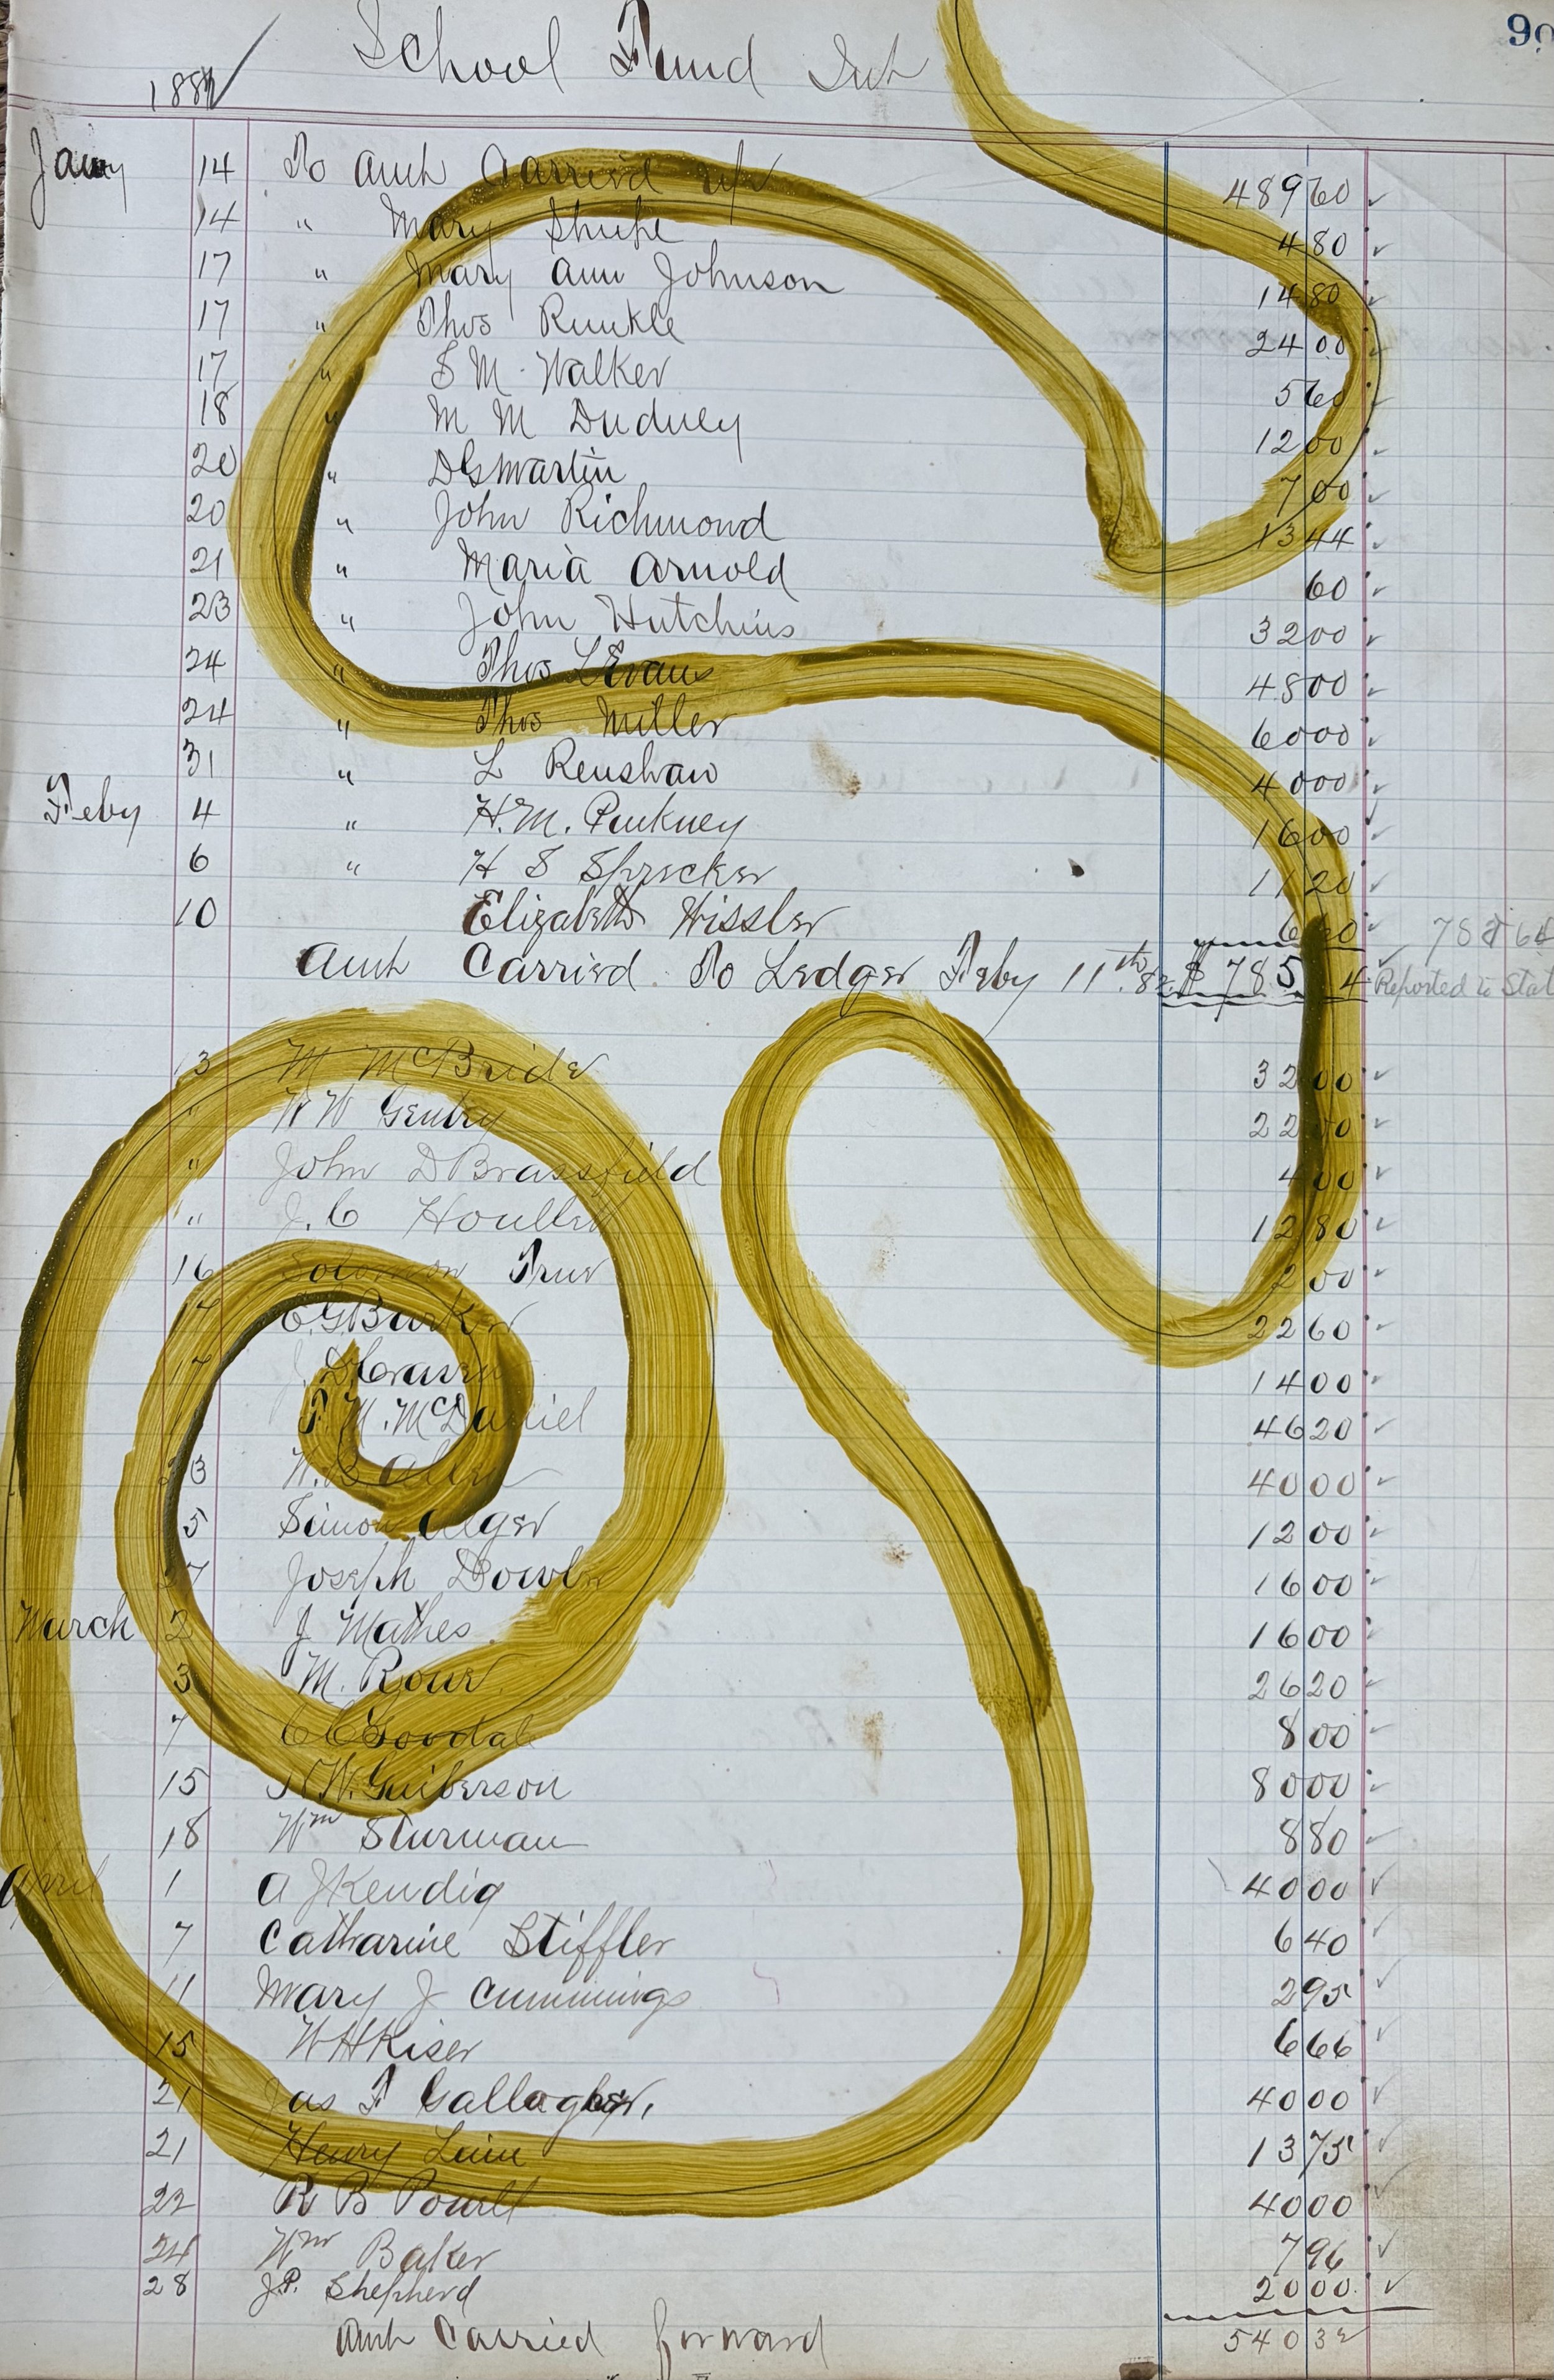 90
School Fund Int
1882
Jany 14 To Amt Carried up 489 60
14 " Mary Shupe 4 80
17 " Mary Ann Johnson 14 80
17 " Thos Runkle 24 00
17 " S M. Walker 5 60
18 " M M Dudney 12 00
20 " D G Martin 7 00
20 " John Richmond 13 44
21 " Maria Arnold 60
23 " John Hutchins 32 00
24 " Thos L Evans 48 00
24 " Thos Miller 60 00
31 " L Renshaw 40 00
Feby 4 " H. M. Pinkney 16 00
6 " H S Sprecker 11 20
10 Elizabeth Wissler 6 60
Amt Carried To Ledger Feby 11th 82 $ 785 4 Reported to Stat
13 M McBride 32 00
" W W Gentry 22 00
" John D Brassfield 4 00
" J. C Houllett 12 80
16 Solomon True 2 00
17 E. G. Barker 22 60
17 J. D Craven 14 00
T. M. McDaniel 46 20
23 W. B Allen 40 00
5 Simon Alger 12 00
27 Joseph Dowler 16 00
March 2 J Mathes 16 00
3 M. Rowe 26 20
7 C C Goodale 8 00
15 W. Guiberson 80 00
18 Wm Sturman 8 80
April 1 A J Kendig 40 00
7 Catharine Stiffler 6 40
11 Mary J Cummings 2 95
15 W H Kiser 6 66
21 Jas F Gallagher, 40 00
21 Henry Lain 13 75
22 R B Powell 40 00
24 Wm Baker 7 96
28 J. P. Shepherd 20 00
Amt Carried forward 540 32